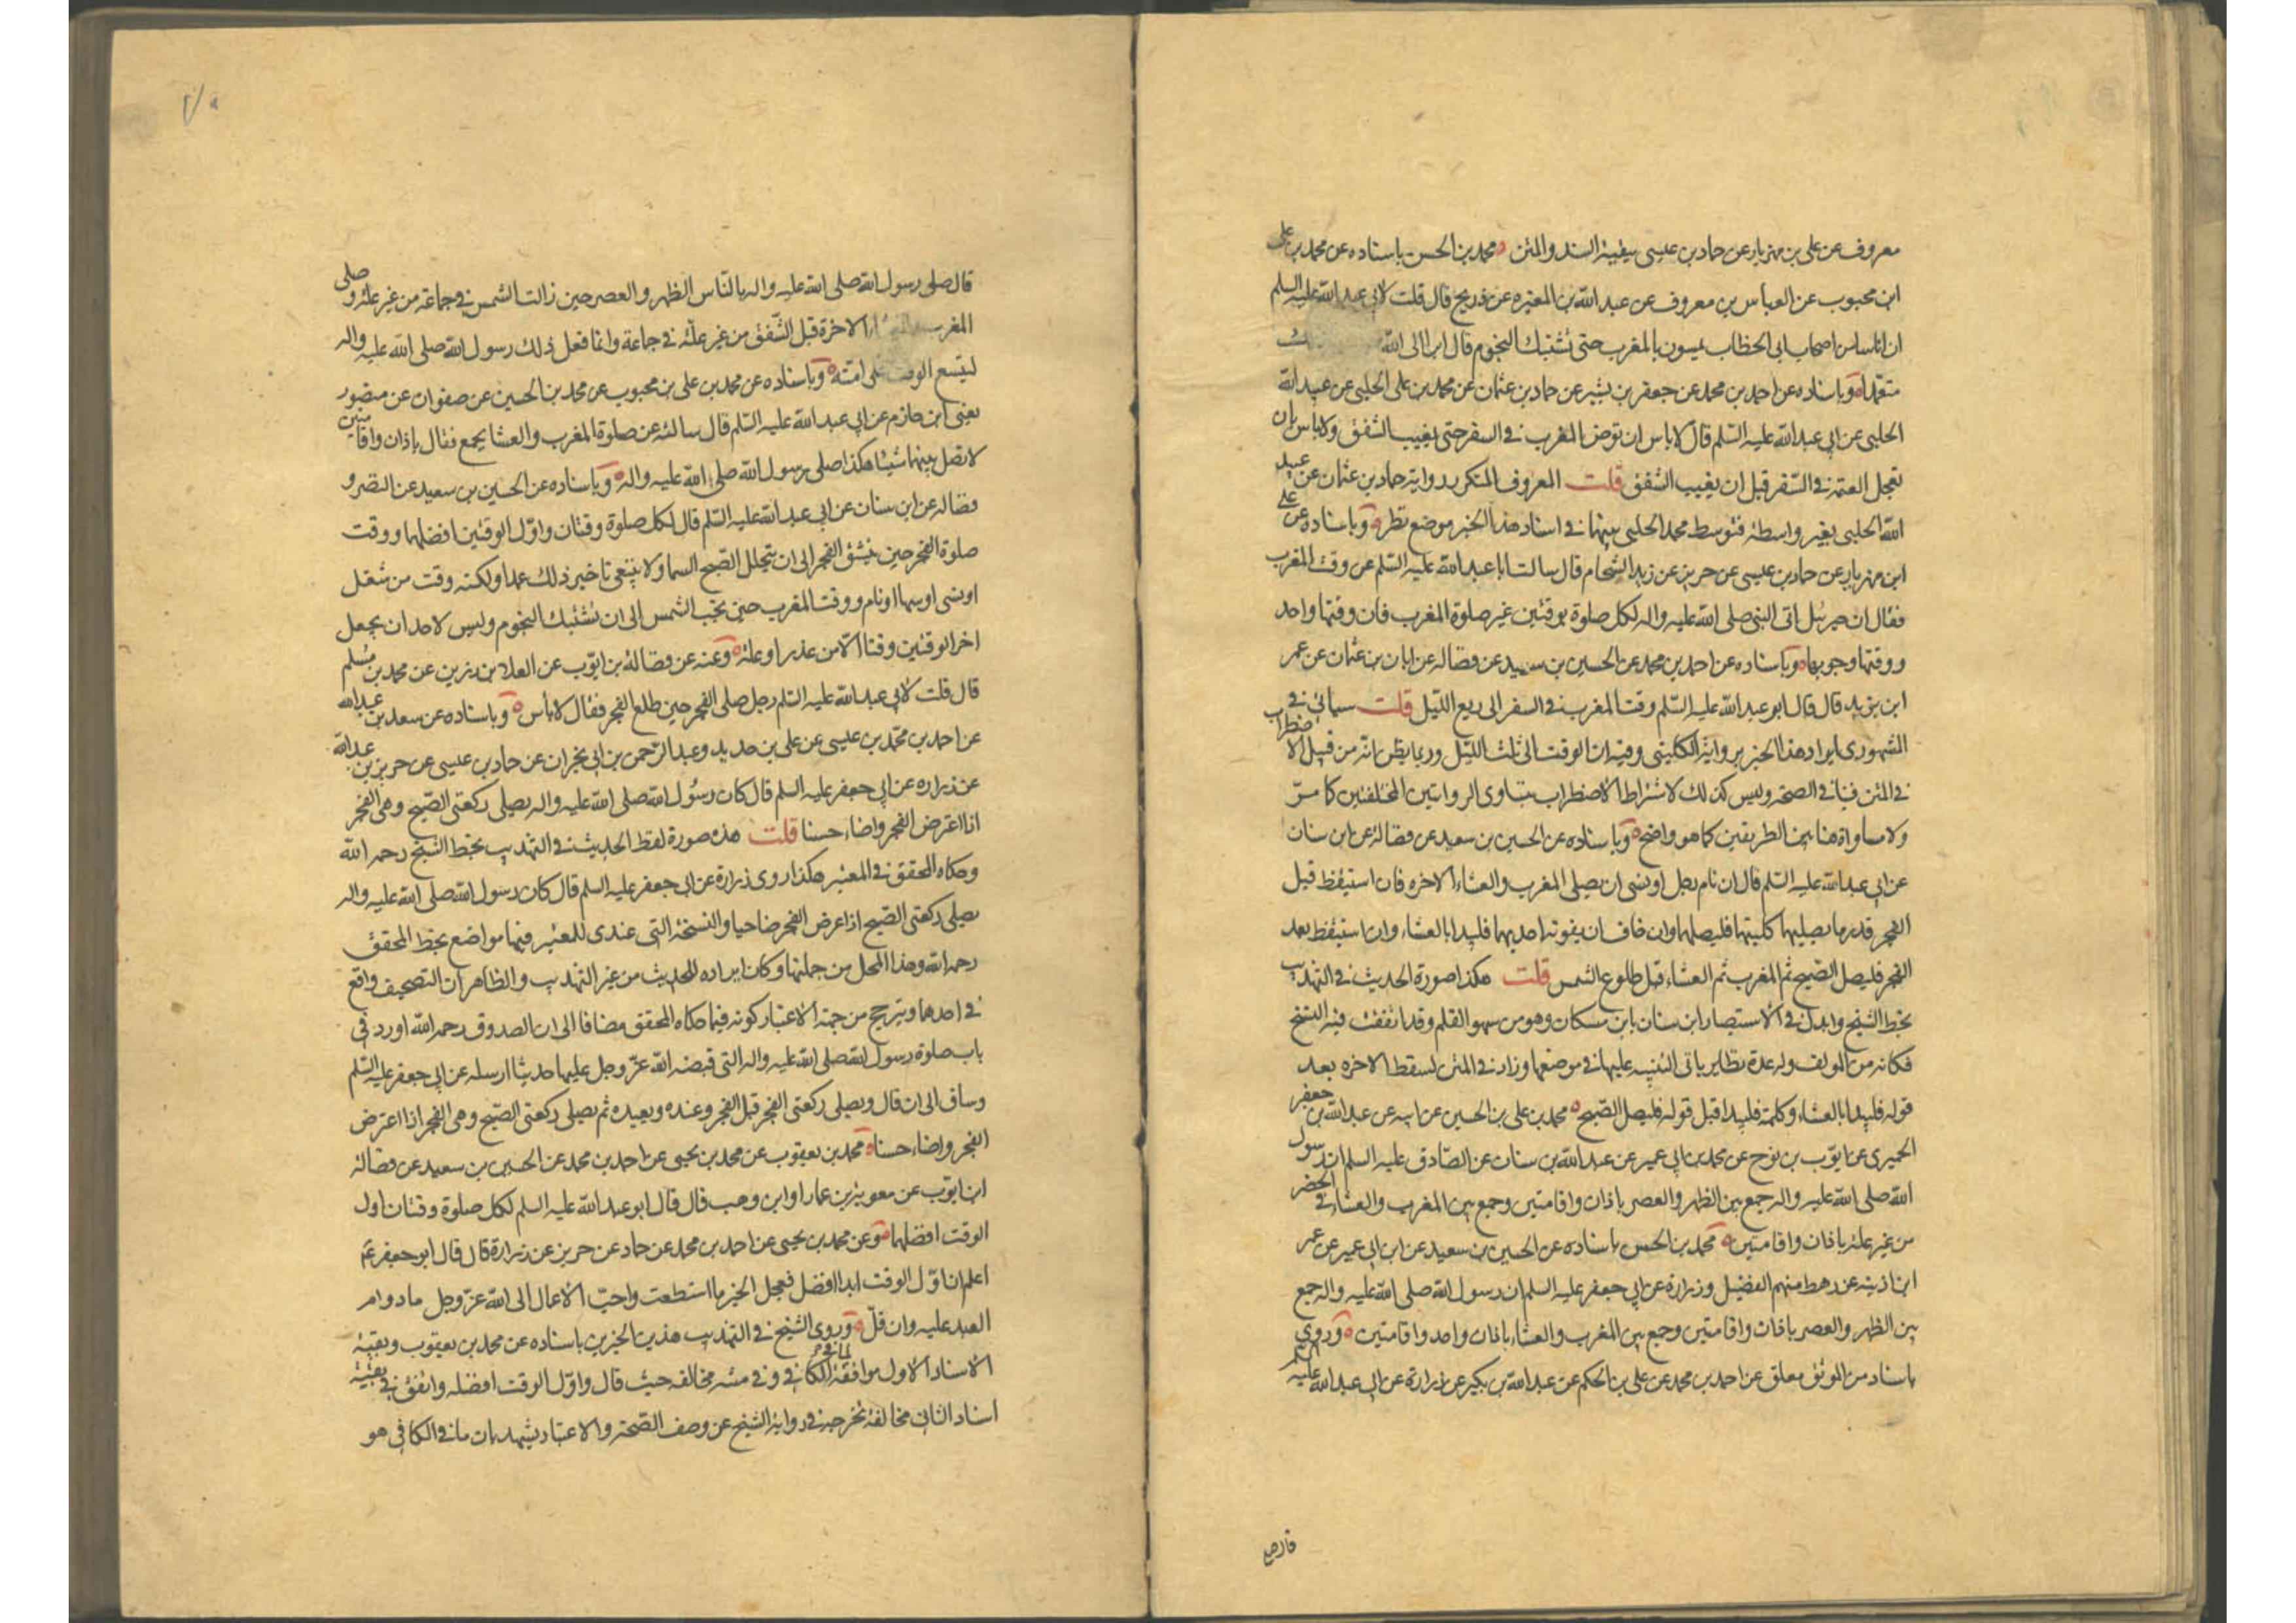 معروف عن علي بن مهزيار عن حماد بن عيسى ببقية السند والمتن محمد بن الحسن باسناده عن محمد بن علي
ابن محبوب عن العباس بن معروف عن عبد الله بن المغيره عن ذريح قال قلت لابي عبد الله عليه السلم
ان اناسا من اصحاب ابي الخطاب يمسون بالمغرب حتى تشتبك النجوم قال ابرا الى الله
متعمدا وباسناده عن احمد بن محمد عن جعفر بن بشير عن حماد بن عثمان عن محمد بن علي الحلبي عن عبيد الله
الحلبي عن ابي عبد الله عليه السلم قال لا باس ان تؤخر المغرب في السفر حتى يغيب الشفق ولا باس بان
تعجل العتمة في السفر قبل ان يغيب الشفق قلت المعروف المتكرر رواية حماد بن عثمان عن عبيد
الله الحلبي بغير واسطة فتوسط محمد الحلبي بينهما في اسناد هذا الخبر موضع نظر وباسناده عن علي
ابن مهزيار عن حماد بن عيسى عن حريز عن زيد الشحام قال سالت ابا عبد الله عليه السلم عن وقت المغرب
فقال ان جبرئيل اتى النبي صلى الله عليه واله لكل صلوة بوقتين غير صلوة المغرب فان وقتها واحد
ووقتها وجوبها وباسناده عن احمد بن محمد عن الحسين بن سعيد عن فضاله عن ابان بن عثمان عن عمر
ابن يزيد قال قال ابو عبد الله عليه السلم وقت المغرب في السفر الى ربع الليل قلت سياتي في
المشهوري ايراد هذا الخبر برواية الكليني وفيه ان الوقت الى ثلث الليل وربما يظن انه من قبيل الاضطراب
في المتن فينافي الصحة وليس كذلك لاشتراط الاضطراب بتساوي الروايتين المختلفتين كما مر
ولا مساواة هنا بين الطريقين كما هو واضح وباسناده عن الحسين بن سعيد عن فضالة عن ابن سنان
عن ابي عبد الله عليه السلم قال ان نام رجل او نسي ان يصلي المغرب والعشاء الاخره فان استيقظ قبل
الفجر قدر ما يصليهما كلتيهما فليصلهما وان خاف ان يفوته احديهما فليبدا بالعشاء وان استيقظ بعد
الفجر فليصل الصبح ثم المغرب ثم العشاء قبل طلوع الشمس قلت هكذا صورة الحديث في التهذيب
بخط الشيخ وابدل في الاستبصار ابن سنان بابن مسكان وهو من سهو القلم وقد اتفقت فيه النسخ
فكانه من المؤلف وله عدة نظاير ياتي التنبيه عليها في موضعها وزاد في المتن لسقط الاخره بعد
قوله فليبدا بالعشاء وكلمة فليبدا قبل قوله فليصل الصبح محمد بن علي بن الحسين عن ابيه عن عبد الله بن جعفر
الحميري عن ايوب بن نوح عن محمد بن ابي عمير عن عبد الله بن سنان عن الصادق عليه السلم ان رسول
الله صلى الله عليه واله جمع بين الظهر والعصر باذان واقامتين وجمع بين المغرب والعشاء في الحضر
من غير علة باذان واقامتين محمد بن الحسن باسناده عن الحسين بن سعيد عن ابن ابي عمير عن عمر
ابن اذينه عن رهط منهم الفضيل وزرارة عن ابي جعفر عليه السلم ان رسول الله صلى الله عليه واله جمع
بين الظهر والعصر باذان واقامتين وجمع بين المغرب والعشاء باذان واحد واقامتين وروى
باسناد من الموثق معلق عن احمد بن محمد عن علي بن الحكم عن عبد الله بن بكير عن زرارة عن ابي عبد الله عليه السلم
قال صلى رسول الله صلى الله عليه واله بالناس الظهر والعصر حين زالت الشمس في جماعة من غير علة وصلى
المغرب الاخرة قبل الشفق من غير علة في جماعة وانما فعل ذلك رسول الله صلى الله عليه واله
ليتسع الوقت على امته وباسناده عن محمد بن علي بن محبوب عن محمد بن الحسين عن صفوان عن منصور
يعني ابن حازم عن ابي عبد الله عليه السلم قال سالته عن صلوة المغرب والعشا بجمع فقال باذان واقامتين
لا تصل بينهما شيئا هكذا صلى رسول الله صلى الله عليه واله وباسناده عن الحسين بن سعيد عن النضر و
فضاله عن ابن سنان عن ابي عبد الله عليه السلم قال لكل صلوة وقتان واول الوقتين افضلهما ووقت
صلوة الفجر حين ينشق الفجر الى ان يتجلل الصبح السما ولا ينبغي تاخير ذلك عمدا ولكنه وقت من شغل
او نسي او سها او نام ووقت المغرب حين تجب الشمس الى ان تشتبك النجوم وليس لاحد ان يجعل
اخر الوقتين وقتا الا من عذر او علة وعنه عن فضالة بن ايوب عن العلا بن رزين عن محمد بن مسلم
قال قلت لابي عبد الله عليه السلم رجل صلى الفجر حين طلع الفجر فقال لا بأس وباسناده عن سعد بن عبد الله
عن احمد بن محمد بن عيسى عن علي بن حديد وعبد الرحمن بن ابي نجران عن حماد بن عيسى عن حريز بن عبد الله
عن زراره عن ابي جعفر عليه السلم قال كان رسول الله صلى الله عليه واله يصلي ركعتي الصبح وهي الفجر
اذا اعترض الفجر واضاء حسنا قلت هذه صورة لفظ الحديث في التهذيب بخط الشيخ رحمه الله
وحكاه المحقق في المعتبر هكذا روى زرارة عن ابي جعفر عليه السلم قال كان رسول الله صلى الله عليه واله
يصلي ركعتي الصبح اذا عرض الفجر ضاحيا والنسخة التي عندي للمعتبر فيها مواضع بخط المحقق
رحمه الله وهذا المحل من جملتها وكان ايراده للحديث من غير التهذيب والظاهر ان التصحيف واقع
في احدهما ويترجح من جهة الاعتبار كونه فيما حكاه المحقق مضافا الى ان الصدوق رحمه الله اورد في
باب صلوة رسول الله صلى الله عليه واله التي قبضه الله عز وجل عليها حديثا ارسله عن ابي جعفر عليه السلم
وساق الى ان قال ويصلي ركعتي الفجر قبل الفجر وعنده وبعيده ثم يصلي ركعتي الصبح وهي الفجر اذا اعترض
الفجر واضاء حسنا محمد بن يعقوب عن محمد بن يحيى عن احمد بن محمد عن الحسين بن سعيد عن فضالة
ابن ايوب عن معوية بن عمار او ابن وهب قال قال ابو عبد الله عليه السلم لكل صلوة وقتان اول
الوقت افضلهما وعن محمد بن يحيى عن احمد بن محمد عن حماد عن حريز عن زرارة قال قال ابو جعفر عم
اعلم ان اول الوقت ابدا افضل فعجل الخير ما استطعت واحب الاعمال الى الله عز وجل ما داوم
العبد عليه وان قل وروى الشيخ في التهذيب هذين الخبرين باسناده عن محمد بن يعقوب وبقية
الاسناد الاول موافقة لما في الكافي وفي متنه مخالفه حيث قال واول الوقت افضله واتفق في بقية
اسناد الثاني مخالفة تخرجه في رواية الشيخ عن وصف الصحة والاعتبار يشهد بان ما في الكافي هو